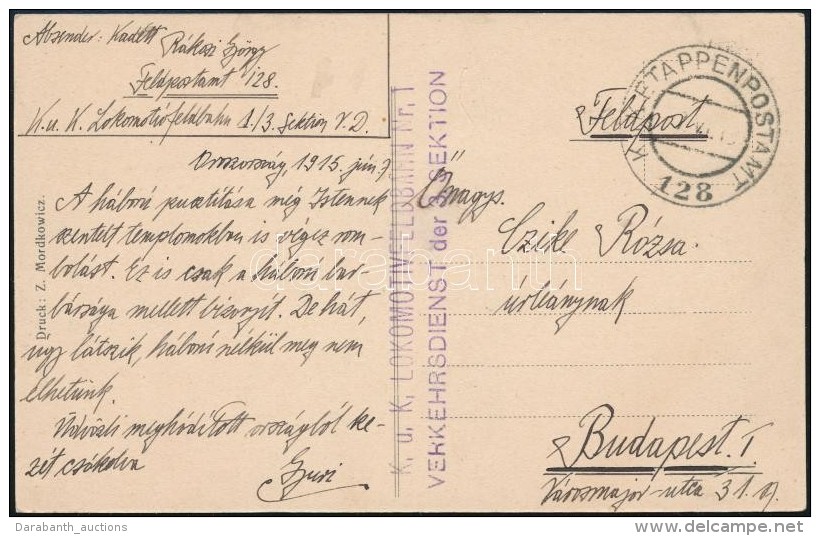 Absender: Kadett
Rákosi György
Feldpostamt 128.
K.u.K. Lokomotivfeldbahn 1/3. Sektion V.D.
Oroszország, 1915. jún. 7.
A háború pusztítása még Istennek
szentelt templomokban is végez rom-
bolást. Ez is csak a háború bar-
bársága mellett bizonyít. De hát,
úgy látszik, háború nélkül meg nem
élhetünk.
Üdvözli meghódított országból ke-
zét csókolva
Gyuri
Druck: Z. Mordkowicz.
K. u. K. LOKOMOTIVFELDBAHN Nr. 1
VERKEHRSDIENST der 3. SEKTION
Feldpost
ETAPPENPOSTAMT
128
Őnagys.
Czike Rózsa
úrleánynak
Budapest. I.
Városmajor-utca 31.
darabanth
Darabanth_auctions
www.delcampe.net